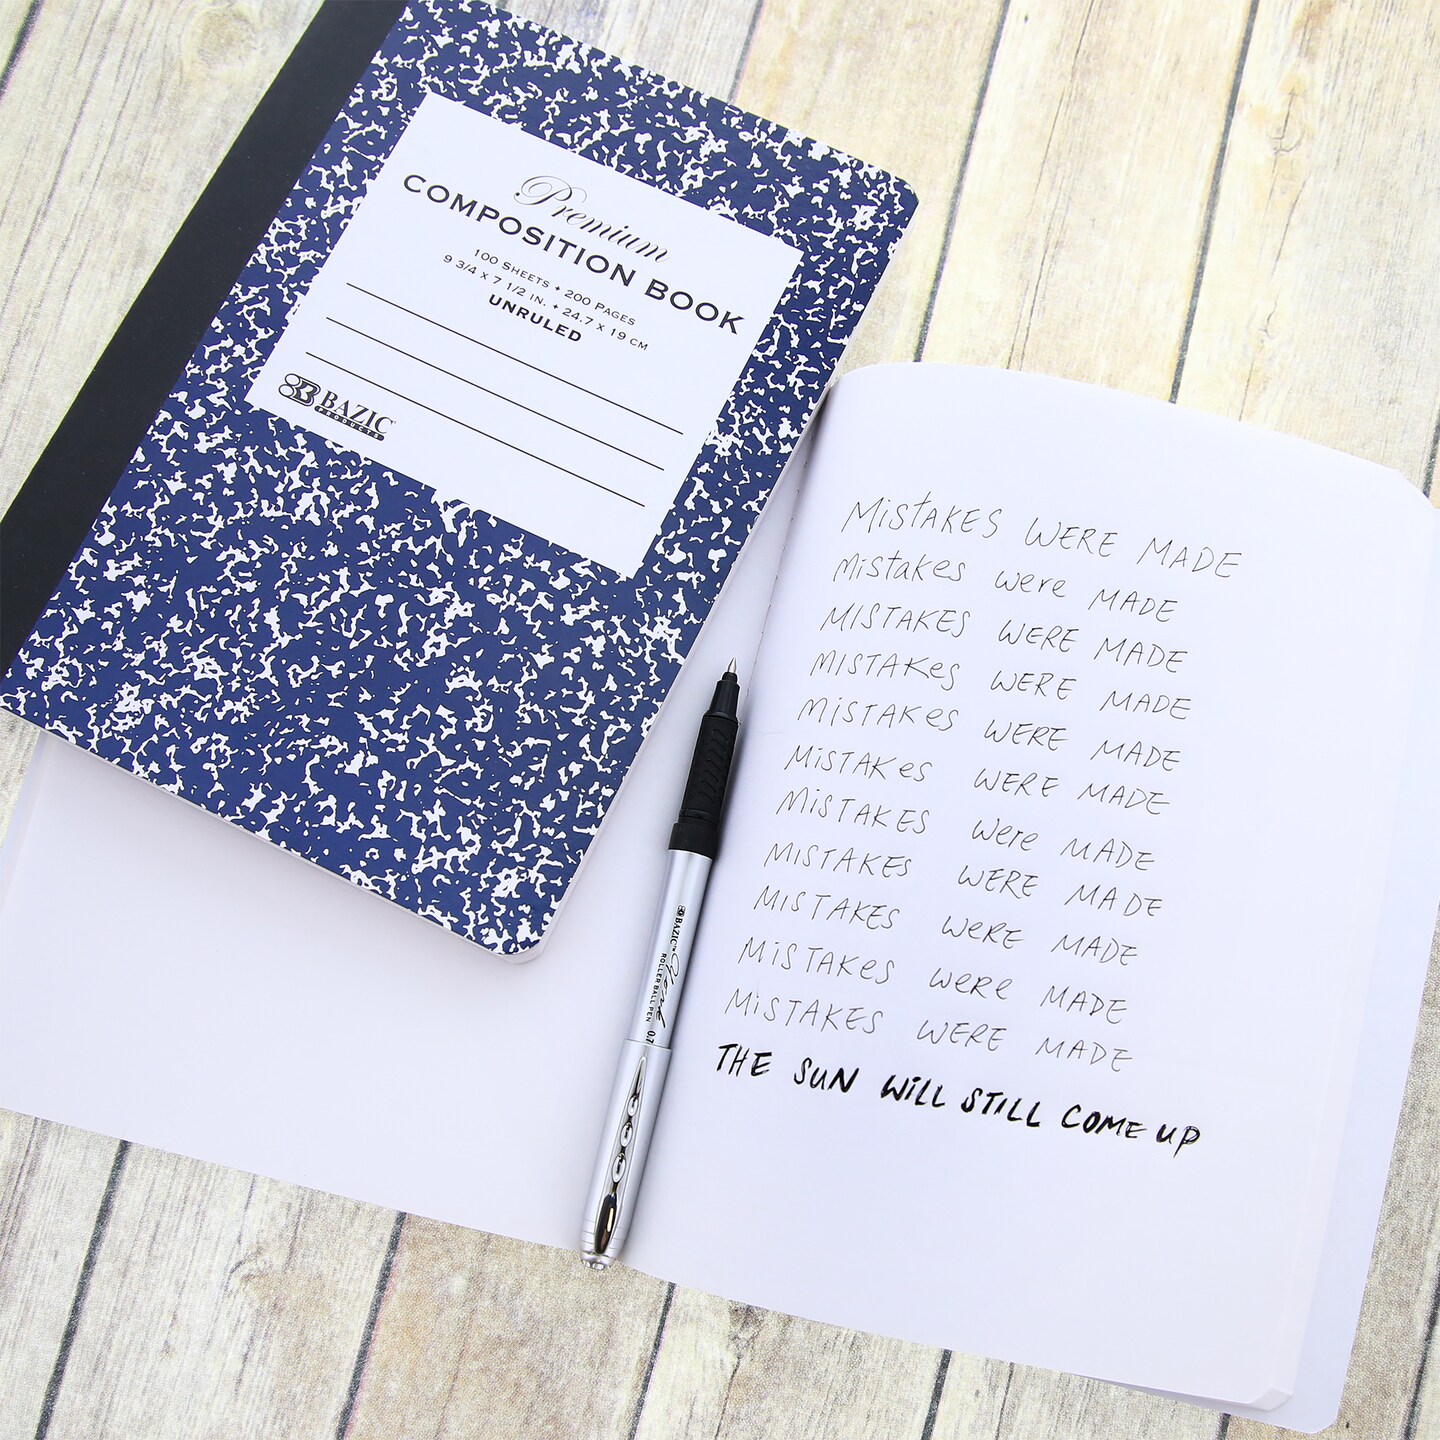 Premium
COMPOSITION BOOK
100 SHEETS • 200 PAGES
9 3/4 X 7 1/2 IN. • 24.7 X 19 CM
UNRULED
BAZIC
PRODUCTS
MiSTAKES WERE MADE
Mistakes were MADE
MISTAKES WERE MADE
MISTAKes WERE MADE
MiSTAKes WERE MADE
MiSTAKes WERE MADE
MiSTAKES Were MADE
MISTAKES WERE MADE
MiSTAKES WeRE MADE
MiSTAKeS weRe MADE
MiSTAKES WERE MADE
THE SUN WiLL STiLL COME UP
BAZIC
ROLLER BALL PEN 0.7